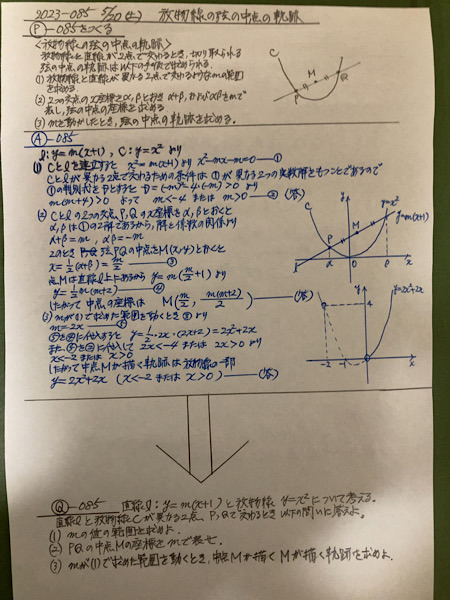 2023-085 5/20(土) 放物線の弦の中点の軌跡
Ⓟ-085をつくる
<放物線の弦の中点の軌跡>
放物線に直線が2点で交わるとき、切り取られる
弦の中点の軌跡は以下の手順で求められる。
(1) 放物線と直線が異なる2点で交わるようなmの範囲
を求める。
(2) 2つの交点のx座標をα, βとおきα+β, およびαβをmで
表し、弦の中点の座標を求める。
(3) mを動かしたとき、弦の中点の軌跡を求める。
C
P
M
Q
Ⓐ-085
l: y=m(x+1), C: y=x²より
(1) Cとlを連立すると x²=m(x+1)より x²-mx-m=0 ―①
Cとlが異なる2点で交わるための条件は①が異なる2つの実数解をもつことであるので
①の判別式をDとすると D=(-m)²-4・(-m)>0より
m(m+4)>0 よって m<-4 または m>0 ―② (答)
(2) Cとlの2つの交点P, Qのx座標をα, βとおくと
α, βは①の2解であるから、解と係数の関係より
α+β=m, αβ=-m
このとき 弦PQの中点をM(x, y)とかくと
x=½(α+β)=m/2 ―③
点Mは直線l上にあるから y=m(m/2+1)より
y=½m(m+2) ―④
したがって 中点の座標は M(m/2, m(m+2)/2) ―(答)
(3) mが(1)で求めた範囲を動くとき③より
m=2x ―⑤
⑤を④に代入すると y=½・2x・(2x+2)=2x²+2x
また、⑤を②に代入して 2x<-4 または 2x>0より
x<-2 または x>0
したがって中点Mが描く軌跡は放物線の一部
y=2x²+2x (x<-2 または x>0) ―(答)
y
C
y=x²
y=m(x+1)
Q
M
P
α
0
β
x
y
y=2x²+2x
4
-2
-1
0
x
Ⓠ-085 直線l: y=m(x+1)と放物線 y=x²について考える。
直線lと放物線Cが異なる2点、P, Qで交わるとき以下の問いに答えよ。
(1) mの値の範囲を求めよ。
(2) PQの中点Mの座標をmで表せ。
(3) mが(1)で求めた範囲を動くとき、中点Mが描くMが描く軌跡を求めよ。